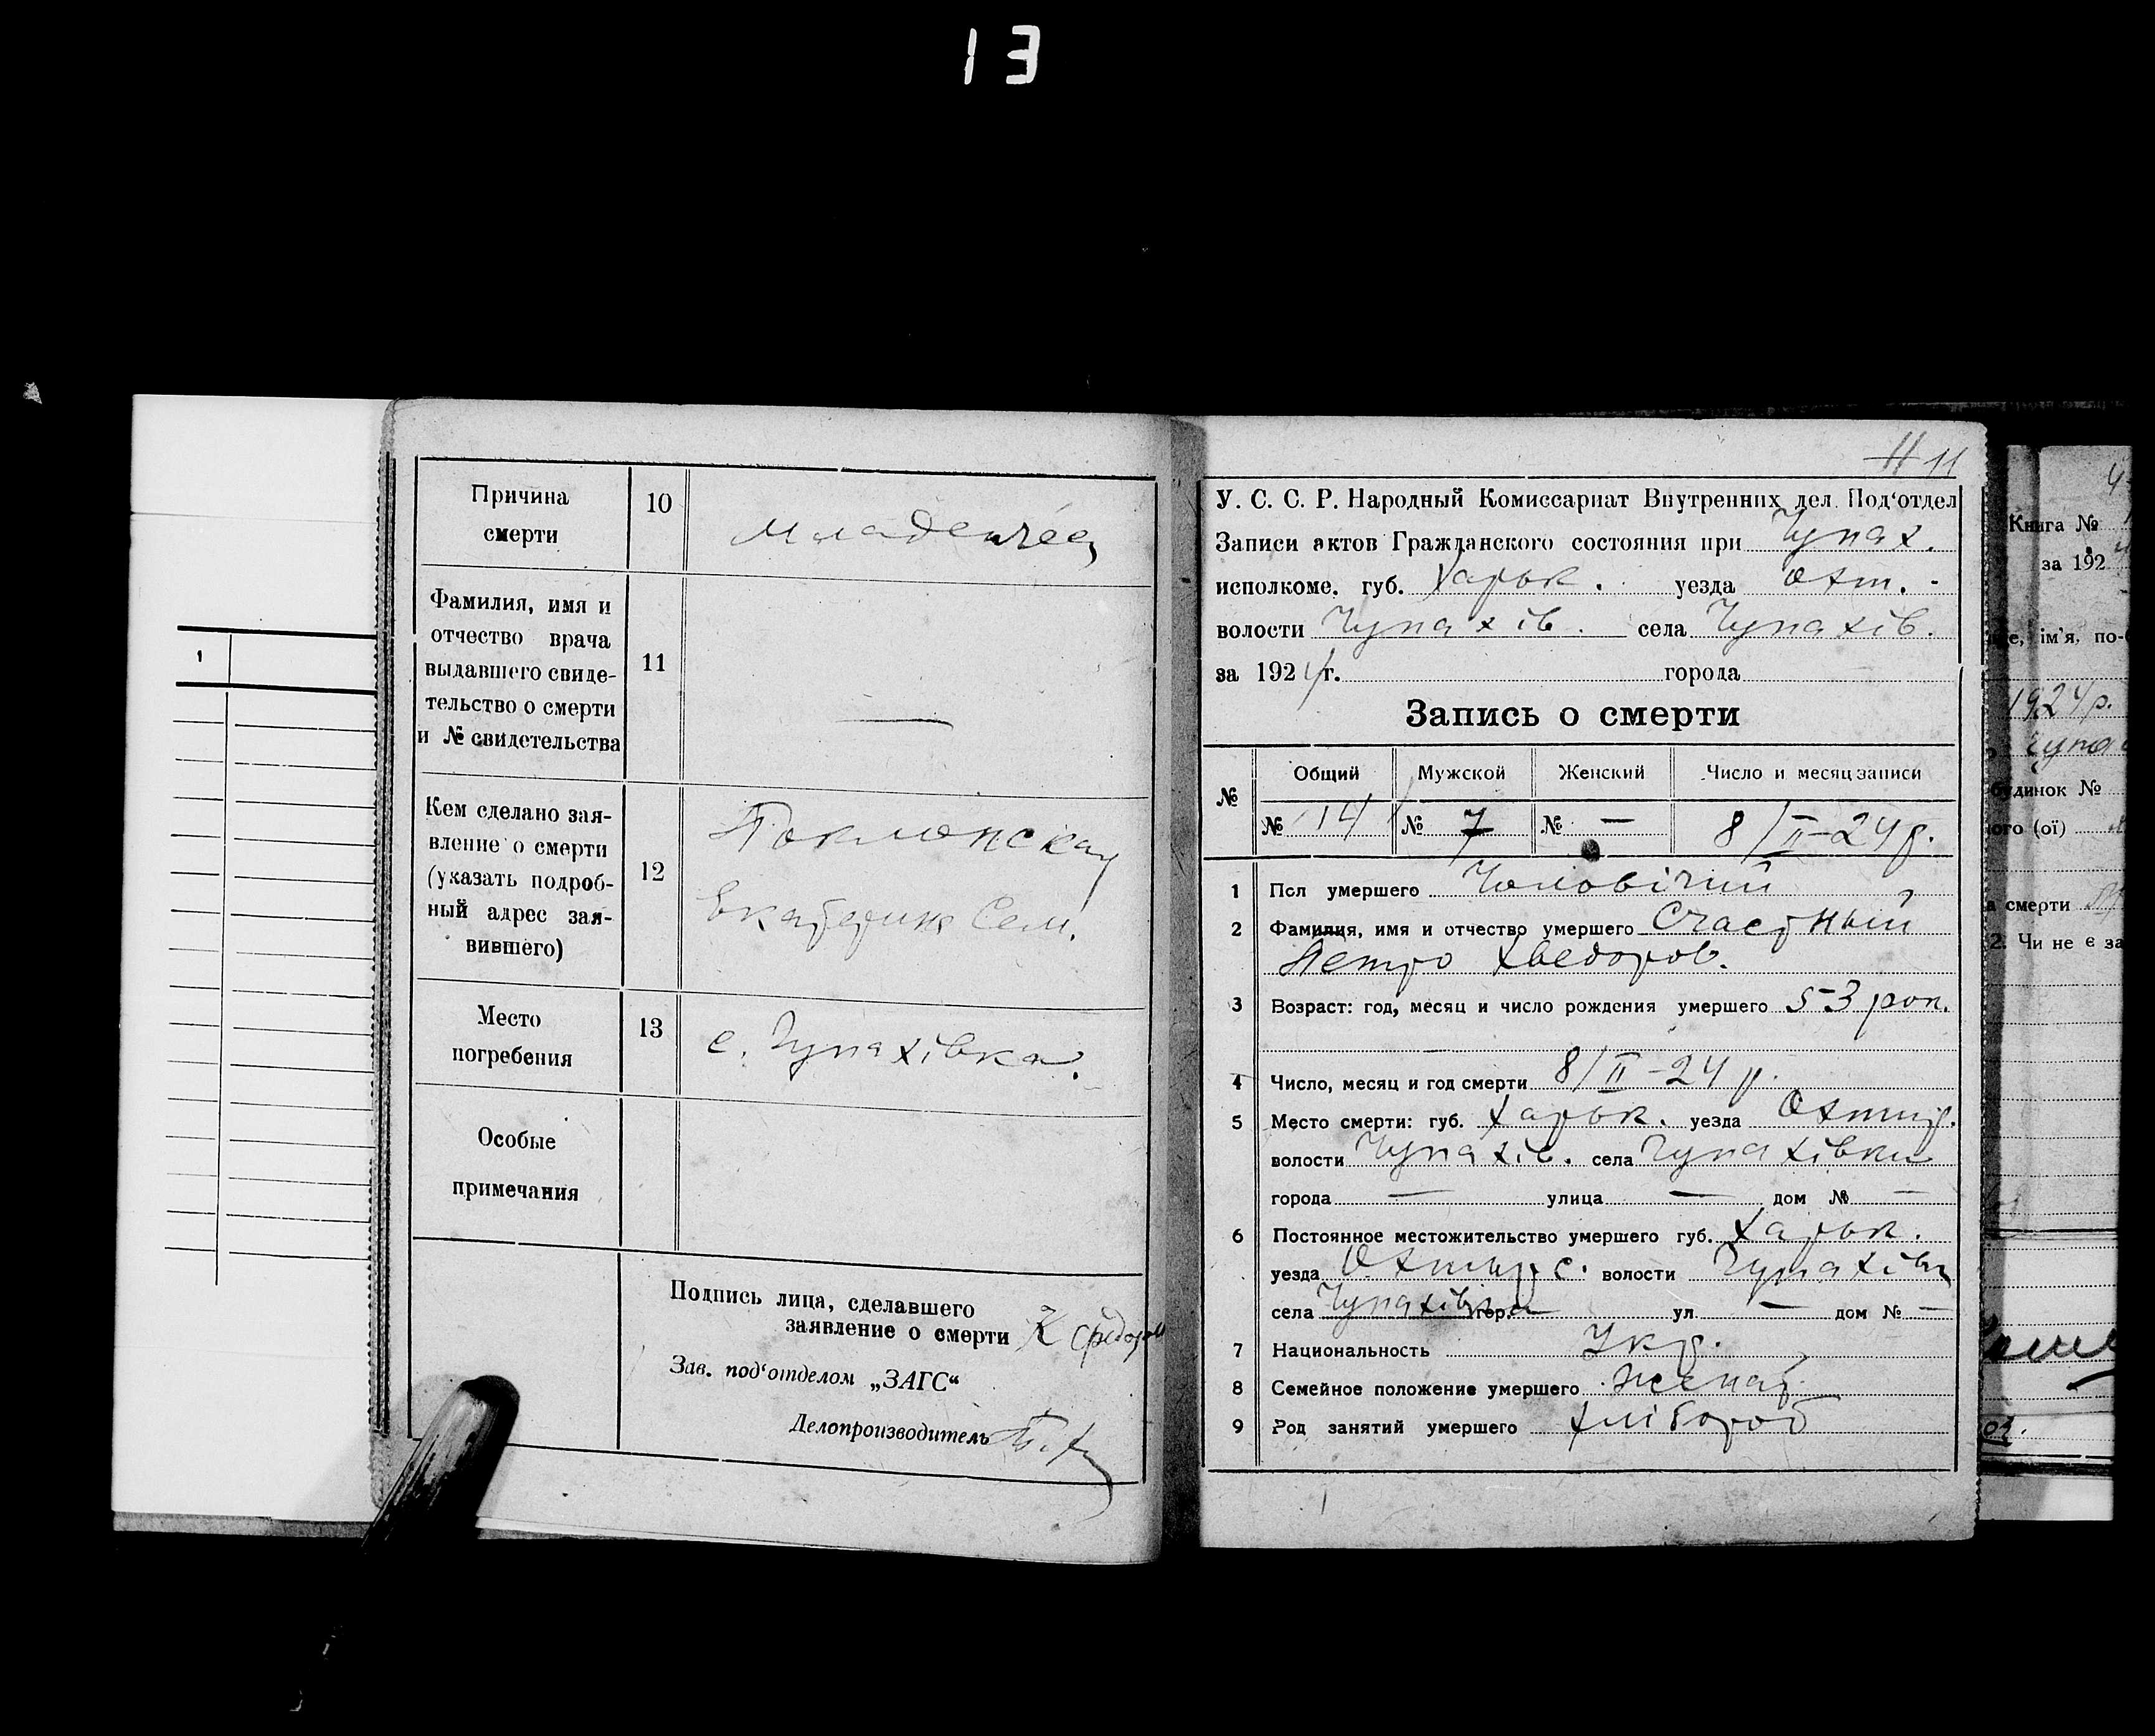 13
1
Причина
смерти
10
Младенчес
Фамилия, имя и
отчество врача
выдавшего свиде-
тельство о смерти
и № свидетельства
11
—
Кем сделано зая-
вление о смерти
(указать подроб-
ный адрес зая-
вившего)
12
Поклонская
Екатерина Сем.
Место
погребения
13
с. Чупахівка.
Особые
примечания
Подпись лица, сделавшего
заявление о смерти К
Зав. под‘отделом „ЗАГС“
Делопроизводитель
11 11
У. С. С. Р. Народный Комиссариат Внутренних дел Под‘отдел
Записи актов Гражданского состояния при Чупах.
исполкоме. губ. Харьк. уезда Охт.
волости Чупахів. села Чупахів.
за 1924 г. города
Запись о смерти
№ Общий Мужской Женский Число и месяц записи
№ 14 № 7 № — 8/II-24 р.
1 Пол умершего Чоловічий
2 Фамилия, имя и отчество умершего Счастный
Петро Хведоров.
3 Возраст: год, месяц и число рождения умершего 53 рок.
4 Число, месяц и год смерти 8/II-24 р.
5 Место смерти: губ. Харьк. уезда Охтир.
волости Чупахів. села Чупахівки
города — улица — дом № —
6 Постоянное местожительство умершего губ. Харьк.
уезда Охтирс. волости Чупахівк
села Чупахівка гор. — ул. — дом № —
7 Национальность Укр.
8 Семейное положение умершего Женат
9 Род занятий умершего хлібороб
Книга №
за 192
ім’я, по-
1924 р.
будинок №
ого (ої)
смерти
2. Чи не є за